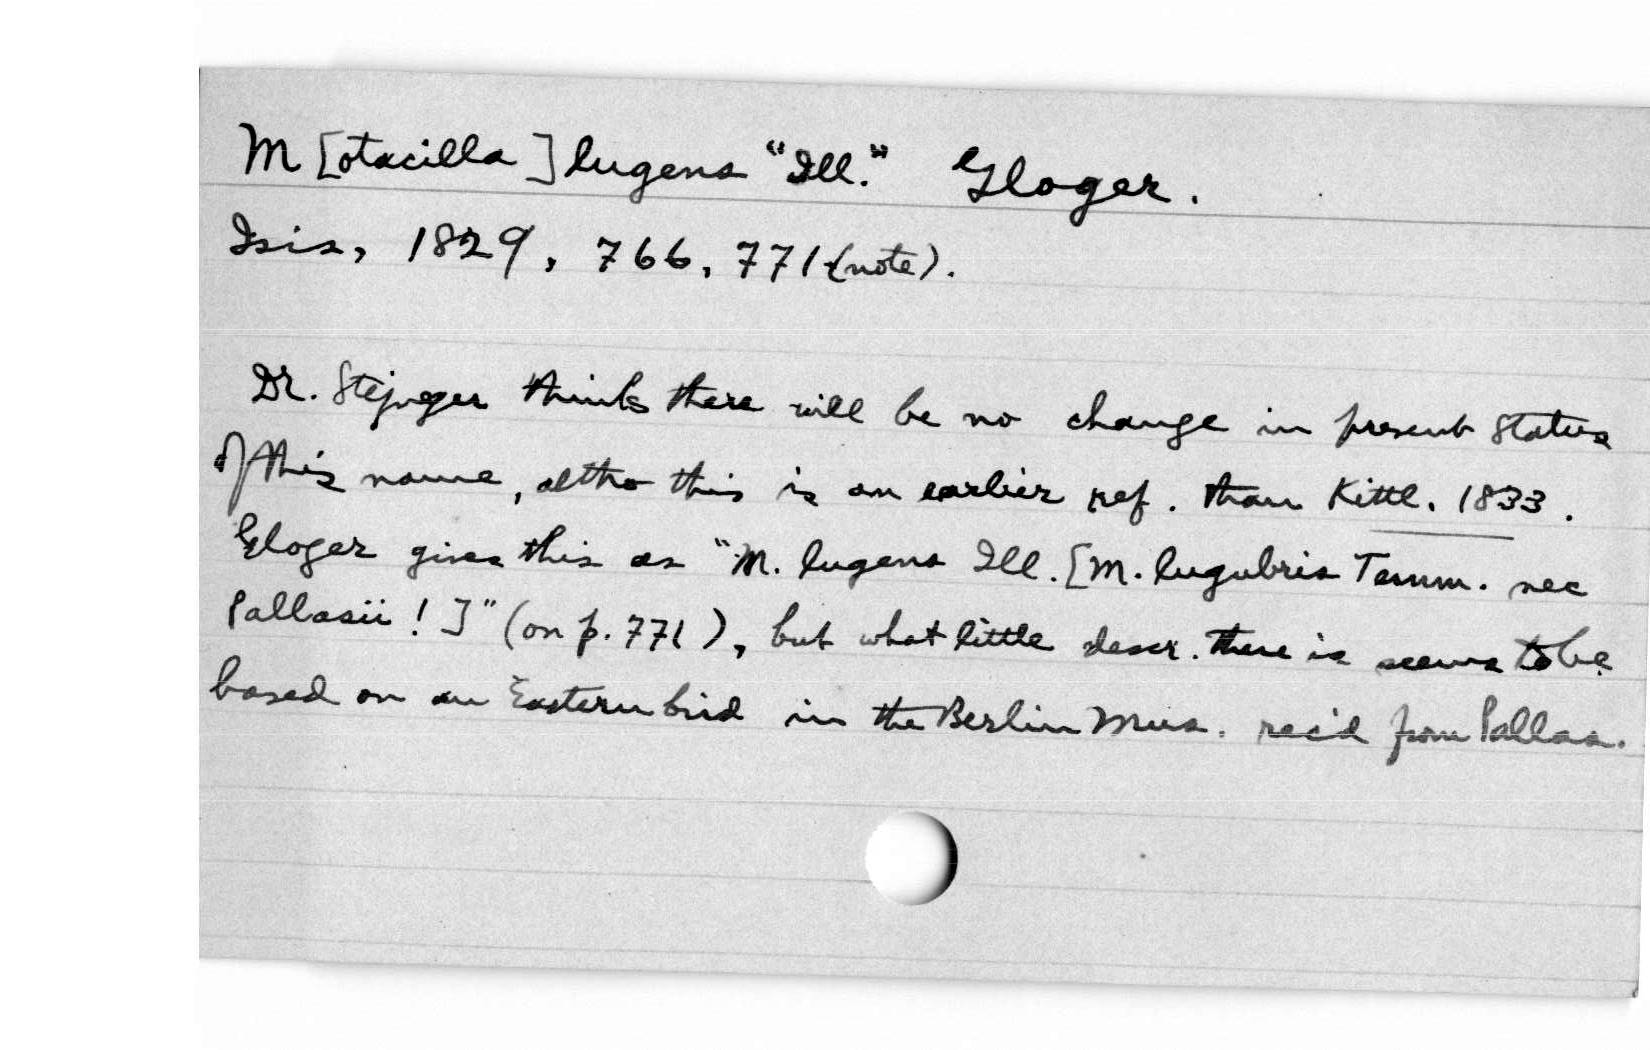 M[otacilla] lugens "Ill." Gloger.
Isis, 1829, 766, 771 (note).
Dr. Stejneger thinks there will be no change in present status
of this name, altho this is an earlier ref. than Kittl. 1833.
Gloger gives this as "M. lugens Ill. [M. lugubris Temm. nec
Pallasii!]" (on p. 771), but what little descr. there is seems to be
based on an Eastern bird in the Berlin Mus. rec'd from Pallas.